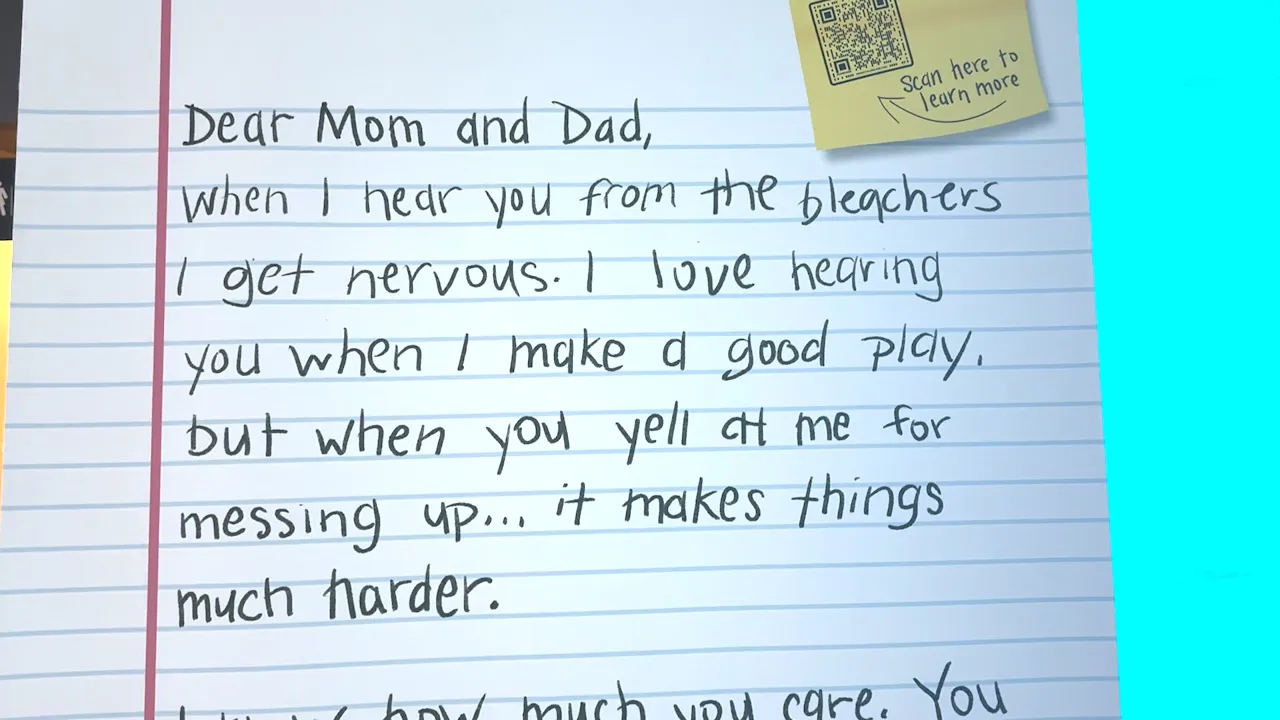 Scan here to
learn more
Dear Mom and Dad,
when I hear you from the bleachers
I get nervous. I love hearing
you when I make a good play.
but when you yell at me for
messing up... it makes things
much harder.
how much you care. You